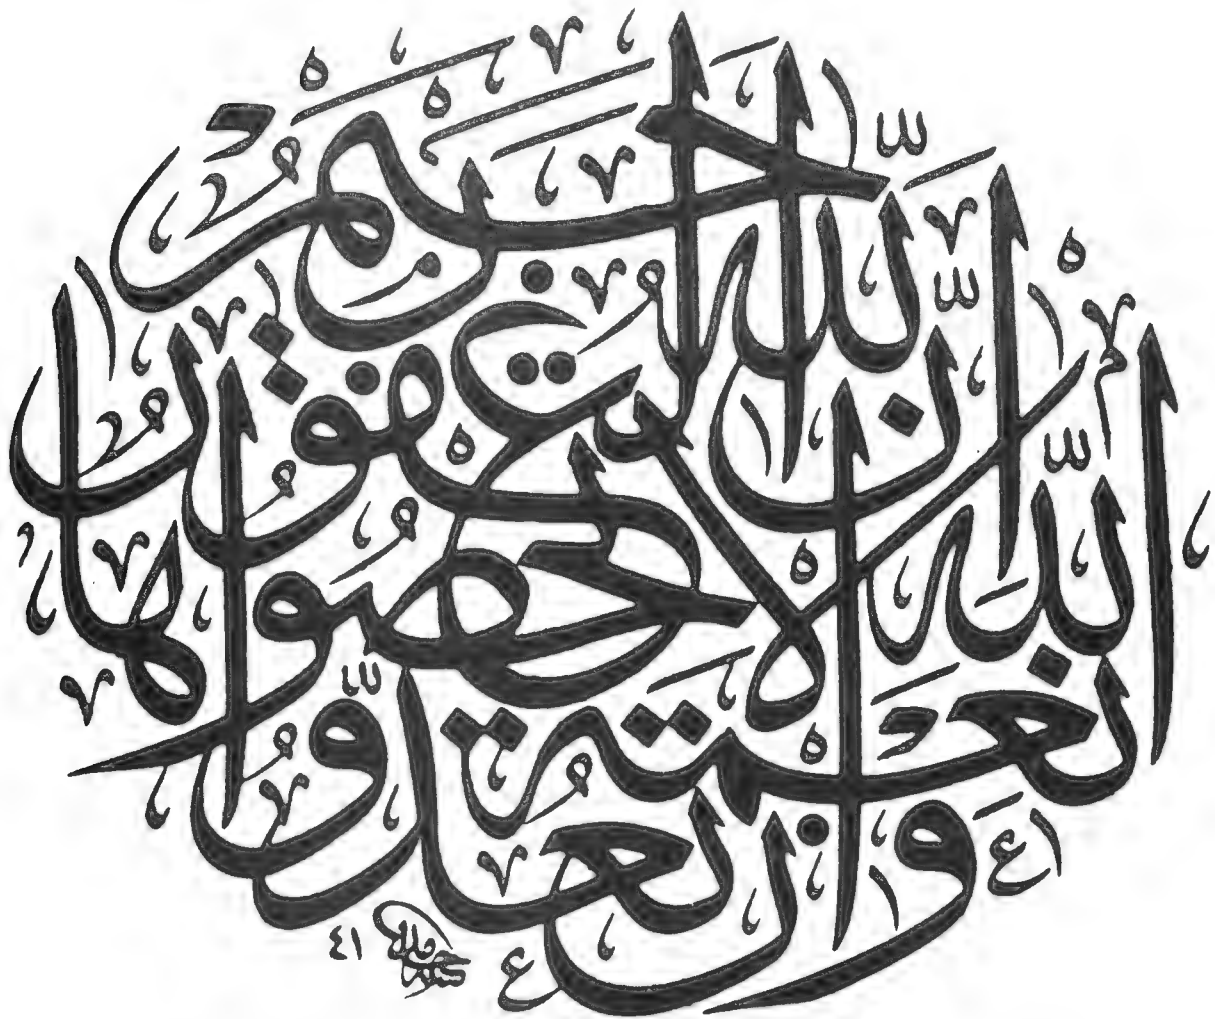 وَإِنْ تَعُدُّوا نِعْمَةَ اللّٰهِ لَا تُحْصُوهَا إِنَّ اللّٰهَ لَغَفُورٌ رَحِيمٌ
٤١